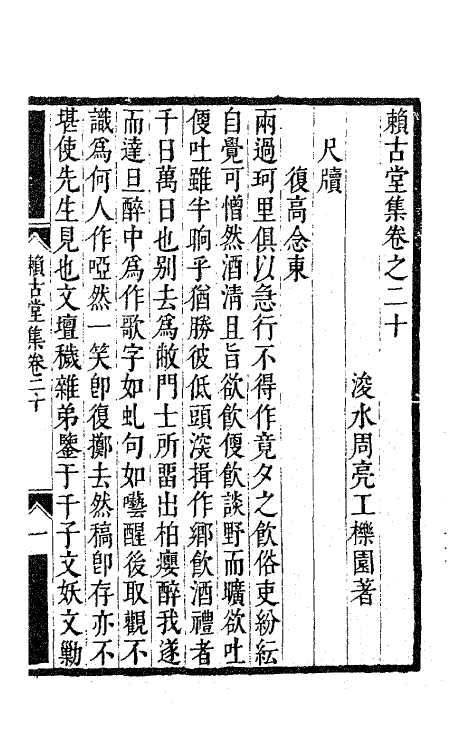 賴古堂集卷之二十
浚水周亮工櫟園著
尺牘
復高念東
兩過珂里俱以急行不得作竟夕之飲俗吏紛紜
自覺可憎然酒清且旨欲飲便飲談野而曠欲吐
便吐雖半晌乎猶勝彼低頭深揖作鄉飲酒禮者
千日萬日也別去為敝門士所畱出柏癭醉我遂
而達旦醉中為作歌字如虬句如囈醒後取觀不
識為何人作啞然一笑卽復擲去然稿卽存亦不
堪使先生見也文壇穢雜弟鑒于千子文妖文勦
賴古堂集卷二十
一